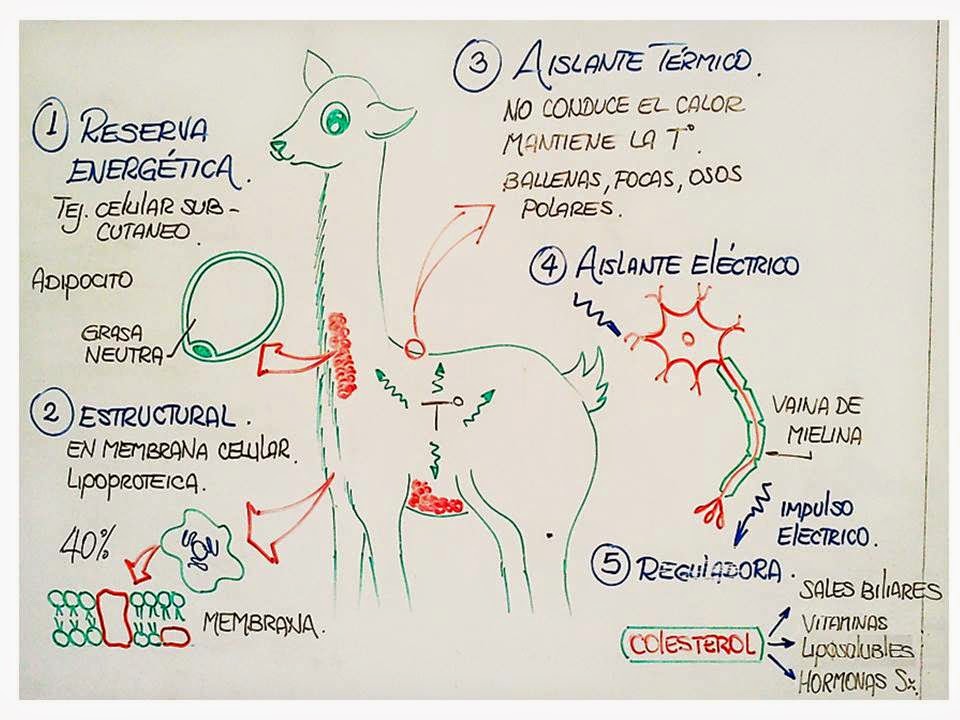 1 RESERVA
ENERGÉTICA.
TEJ. CELULAR SUB-
CUTANEO.
ADIPOCITO
GRASA
NEUTRA
2 ESTRUCTURAL.
EN MEMBRANA CELULAR.
LIPOPROTEICA.
40%
MEMBRANA.
T°
3 AISLANTE TÉRMICO.
NO CONDUCE EL CALOR
MANTIENE LA T°.
BALLENAS, FOCAS, OSOS
POLARES.
4 AISLANTE ELÉCTRICO
VAINA DE
MIELINA
IMPULSO
ELECTRICO.
5 REGULADORA.
COLESTEROL
SALES BILIARES
VITAMINAS
LIPOSOLUBLES
HORMONAS Sx.